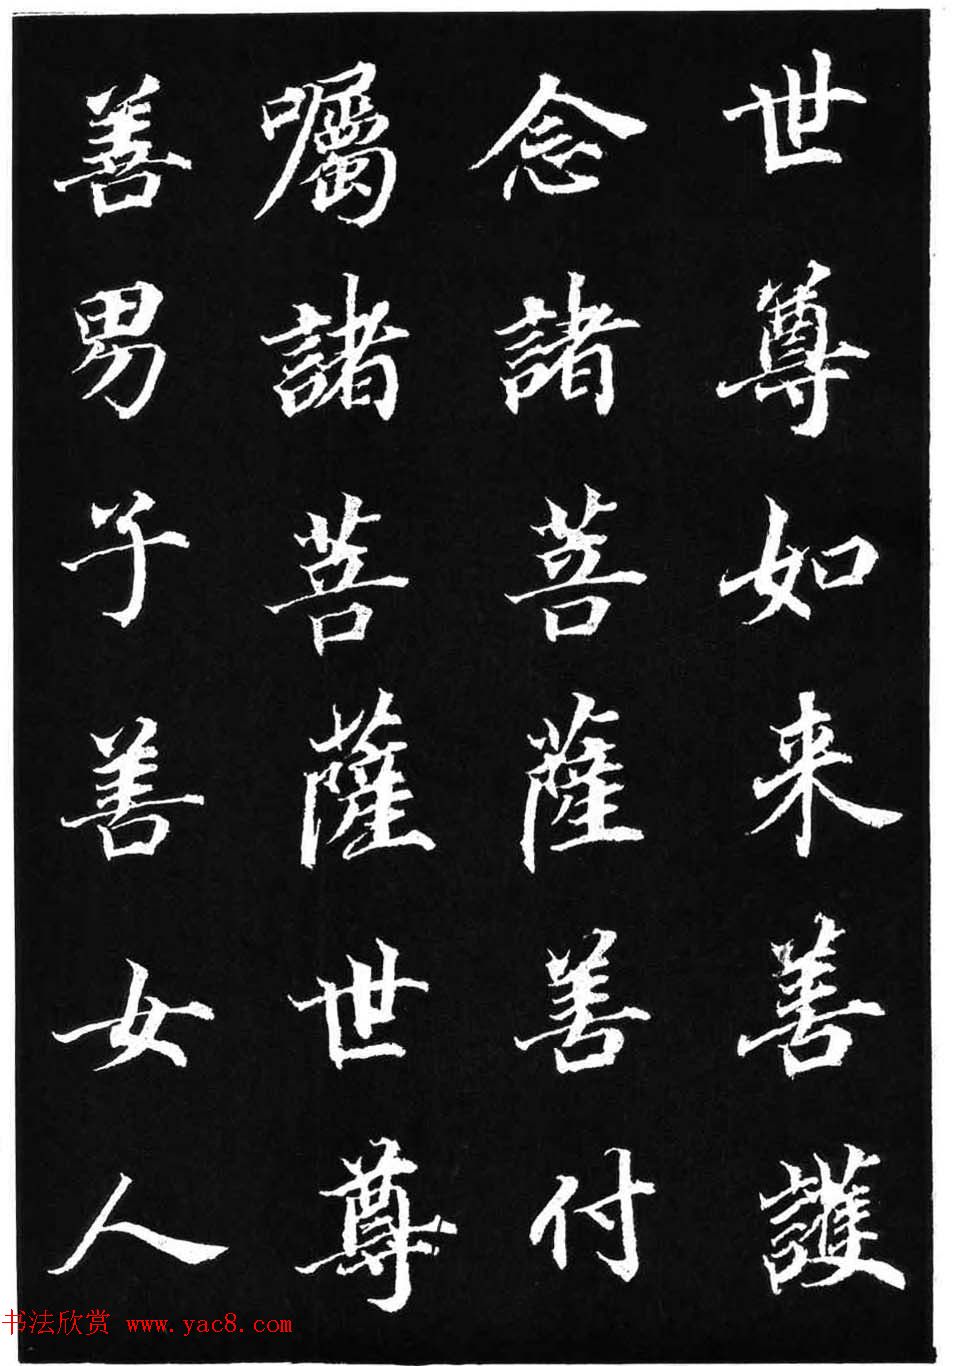 世尊如来善護
念諸菩薩善付
囑諸菩薩世尊
善男子善女人
书法欣赏 www.yac8.com